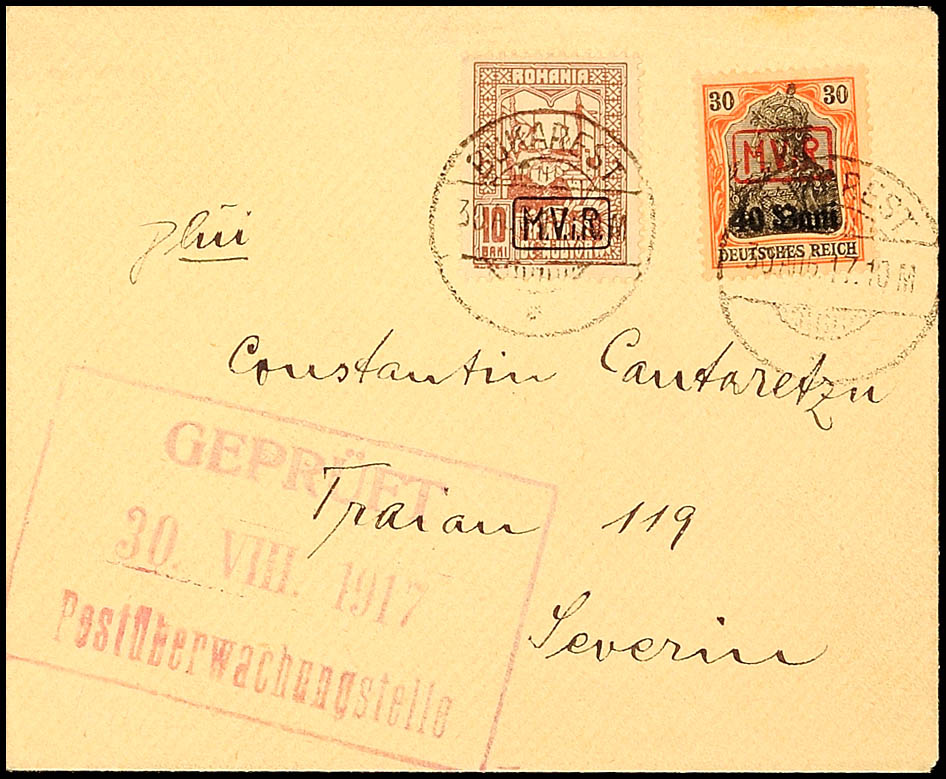 ROMANIA
10
BANI
M.V.i.R.
BUKAREST
30 30
M.V.i.R.
40 Bani
DEUTSCHES REICH
REST
30 AUG. 17. 10 M
Constantin Cantaretzu
Traian 119
Severin
GEPRÜFT
30. VIII. 1917
Postüberwachungstelle